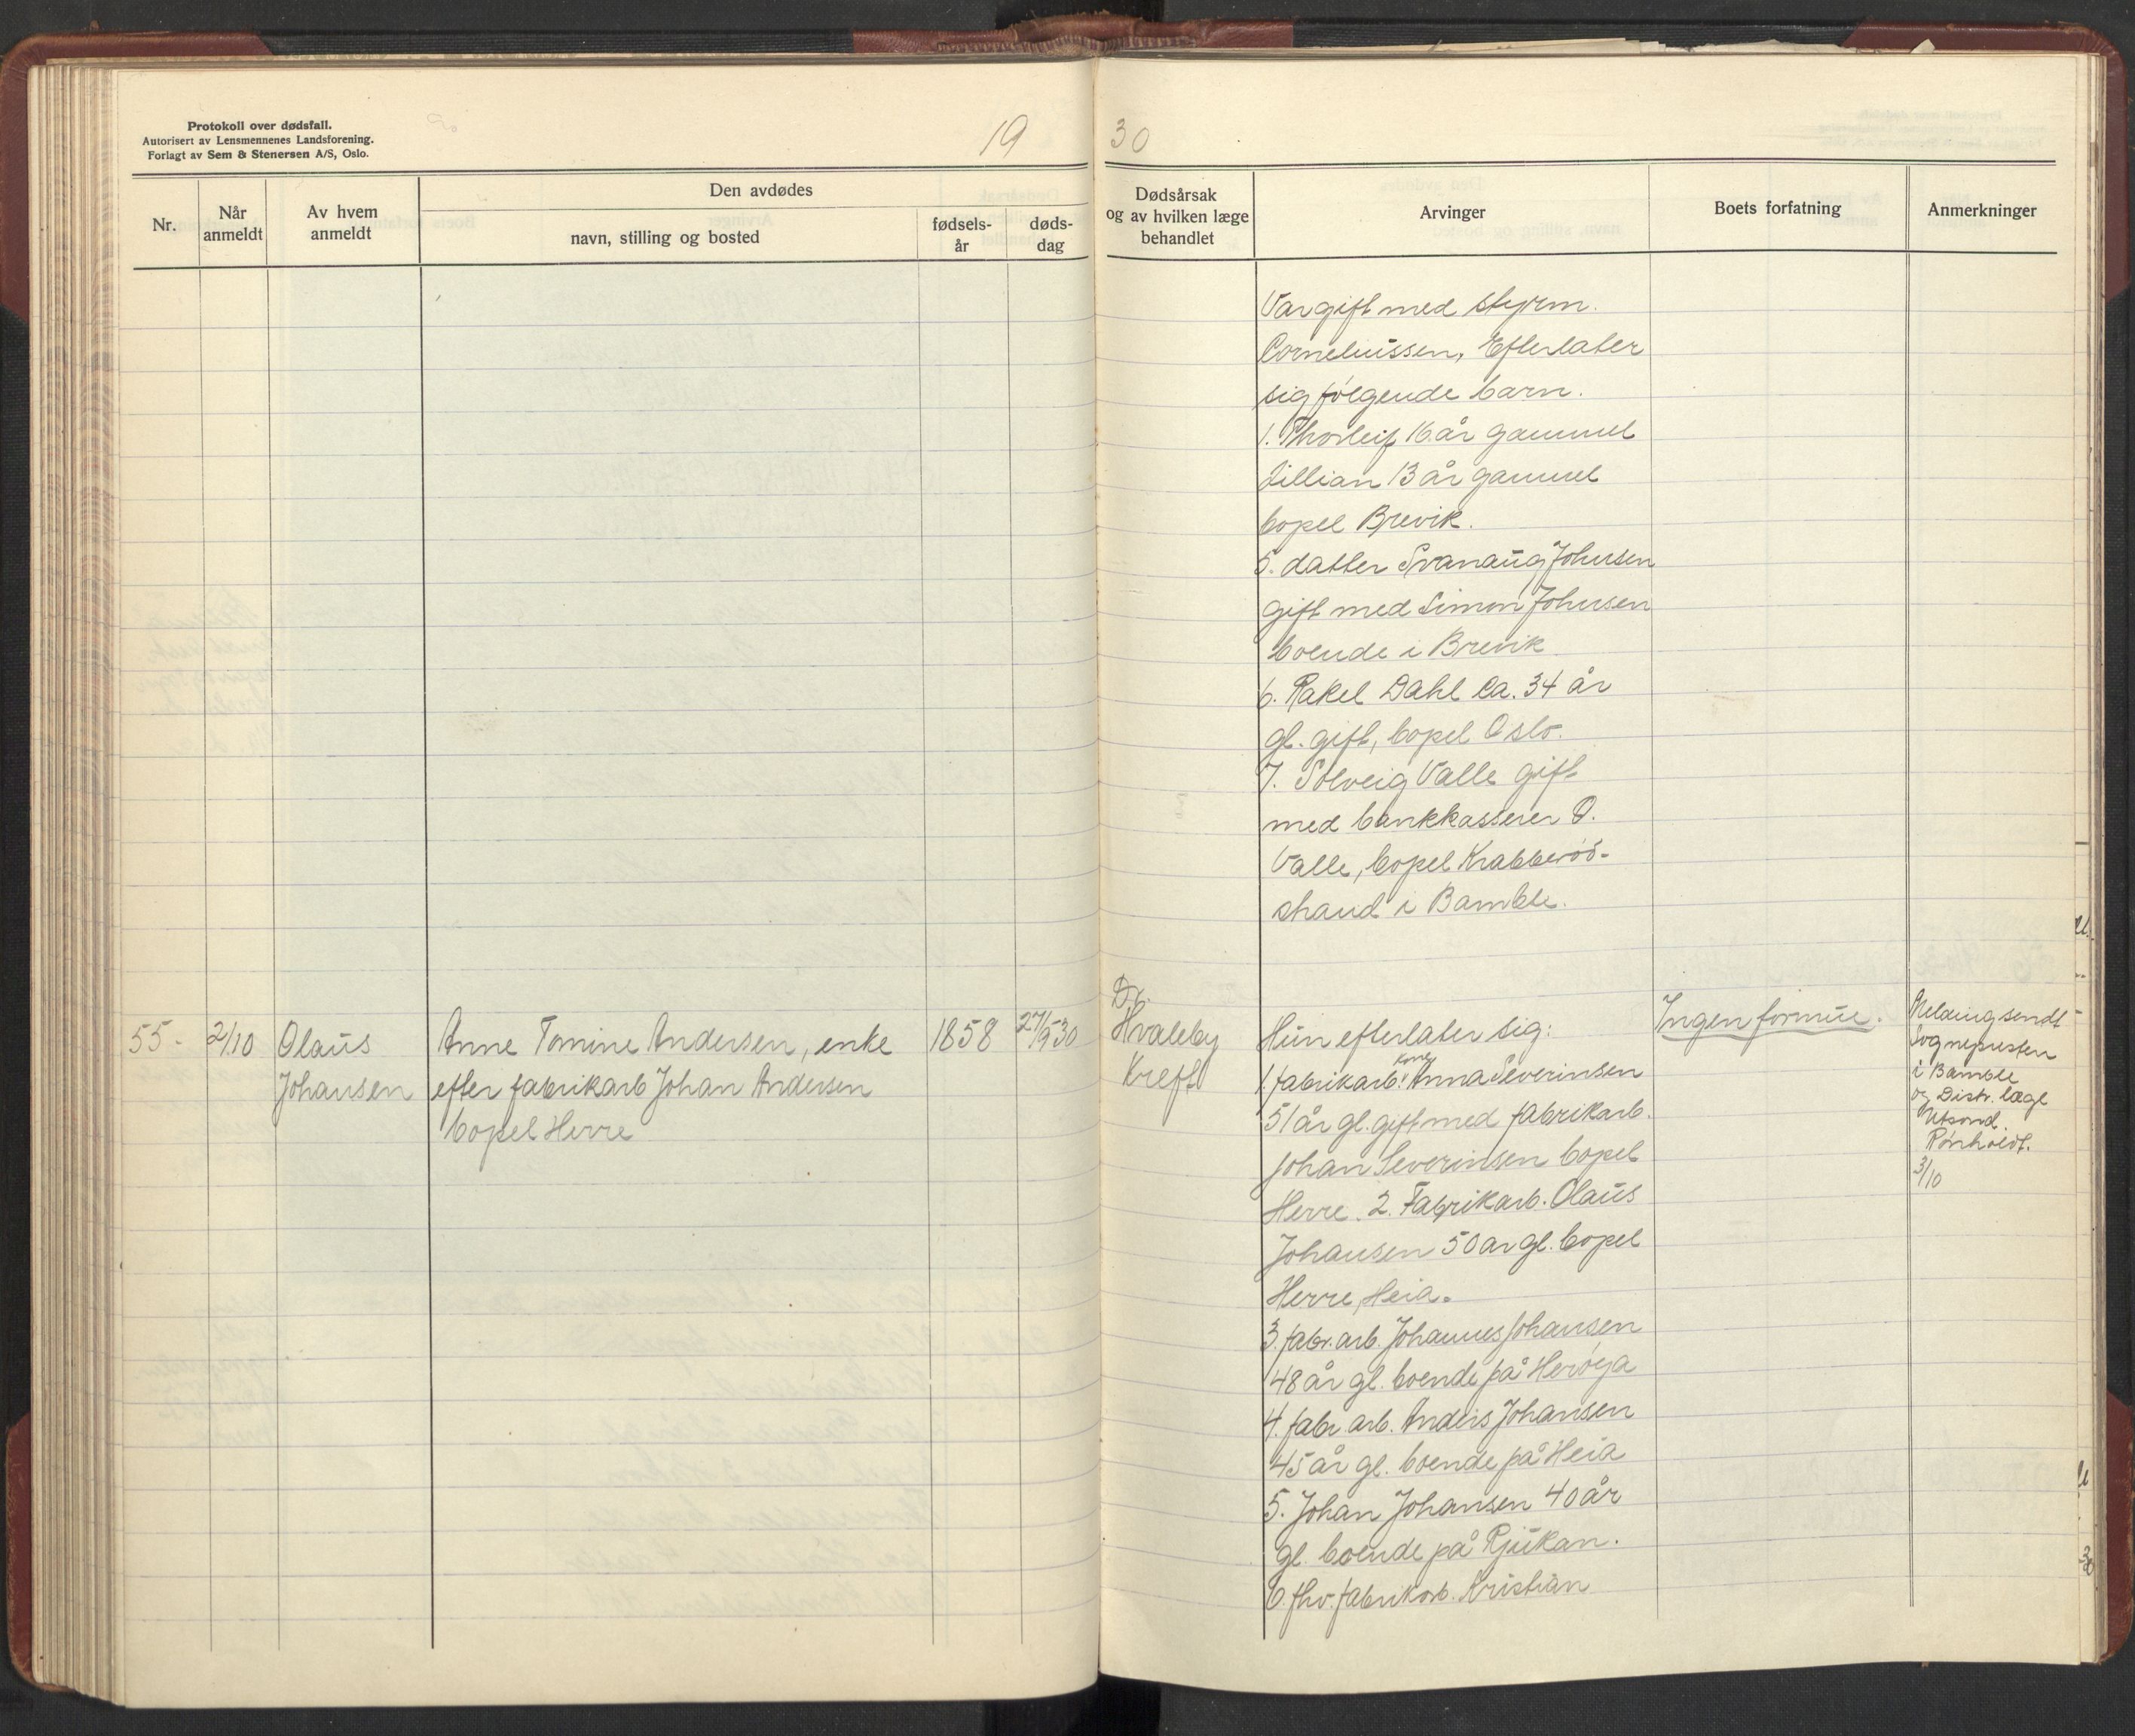 Protokoll over dødsfall.
Autorisert av Lensmennenes Landsforening.
Forlagt av Sem & Stenersen A/S, Oslo.
19
30
Nr.
Når
anmeldt
Av hvem
anmeldt
Den avdødes
navn, stilling og bosted
fødsels-
år
døds-
dag
Dødsårsak
og av hvilken læge
behandlet
Arvinger
Boets forfatning
Anmerkninger
Var gift med styrm.
Corneliussen, Efterlater
sig følgende barn.
1. Thorleif 16 år gammel
Lillian 13 år gammel
bopel Brevik.
5. datter Svanaug Johnsen
gift med Simon Johnsen
boende i Brevik
6. Rakel Dahl ca. 34 år
gl. gift, bopel Oslo.
7. Solveig Valle gift
med bankkasserer O.
Valle, bopel Krabberød-
strand i Bamble.
55.
2/10
Olaus
Johansen
Anne Tomine Andersen, enke
efter fabrikarb Johan Andersen
bopel Herre
1858
27/9 30
Dr.
Hvaleby
Kreft
Hun efterlater sig:
1. fabrikarb. kone Anna Severinsen
51 år gl. gift med fabrikarb.
Johan Severinsen bopel
Herre. 2. Fabrikarb. Olaus
Johansen 50 år gl. bopel
Herre, Heia.
3. fabr. arb. Johannes Johansen
48 år gl. boende på Herøya
4. fabr. arb. Anders Johansen
45 år gl. boende på Heia
5. Johan Johansen 40 år
gl. boende på Rjukan.
6. fhv. fabrikarb. Kristian
Ingen formue.
Melding sendt
Sognepresten
i Bamble
og Distr. læge
Rönholdt.
3/10